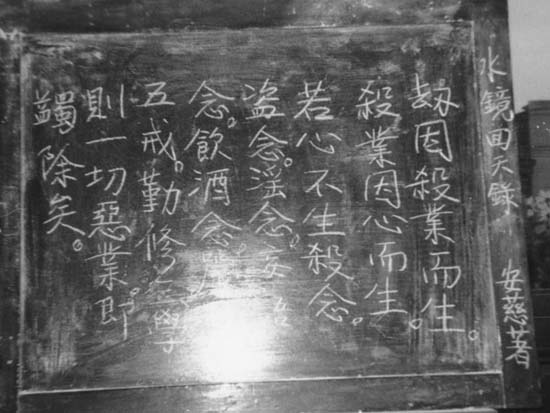 水鏡回天錄 安慈著
劫因殺業而生。
殺業因心而生。
若心不生殺念。
盜念。淫念。妄語
念。飲酒念。
五戒。勤修三學
則一切惡業。即
蠲除矣。